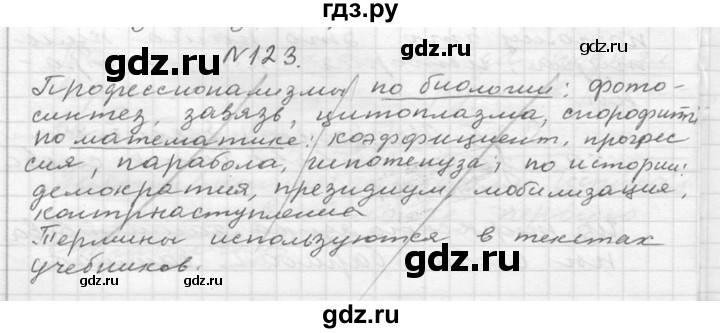 гдз.ру
gdz.ru gdz.ru
№123.
Профессионализмы по биологии: фото-
синтез, завязь, цитоплазма, спорофит;
по математике: коэффициент, прогрес-
сия, парабола, гипотенуза; по истории:
демократия, президиум, мобилизация,
контрнаступление
Термины используются в текстах
учебников.
gdz.ru gdz.ru
gdz.ru gdz.ru
gdz.ru gdz.ru
gdz.ru